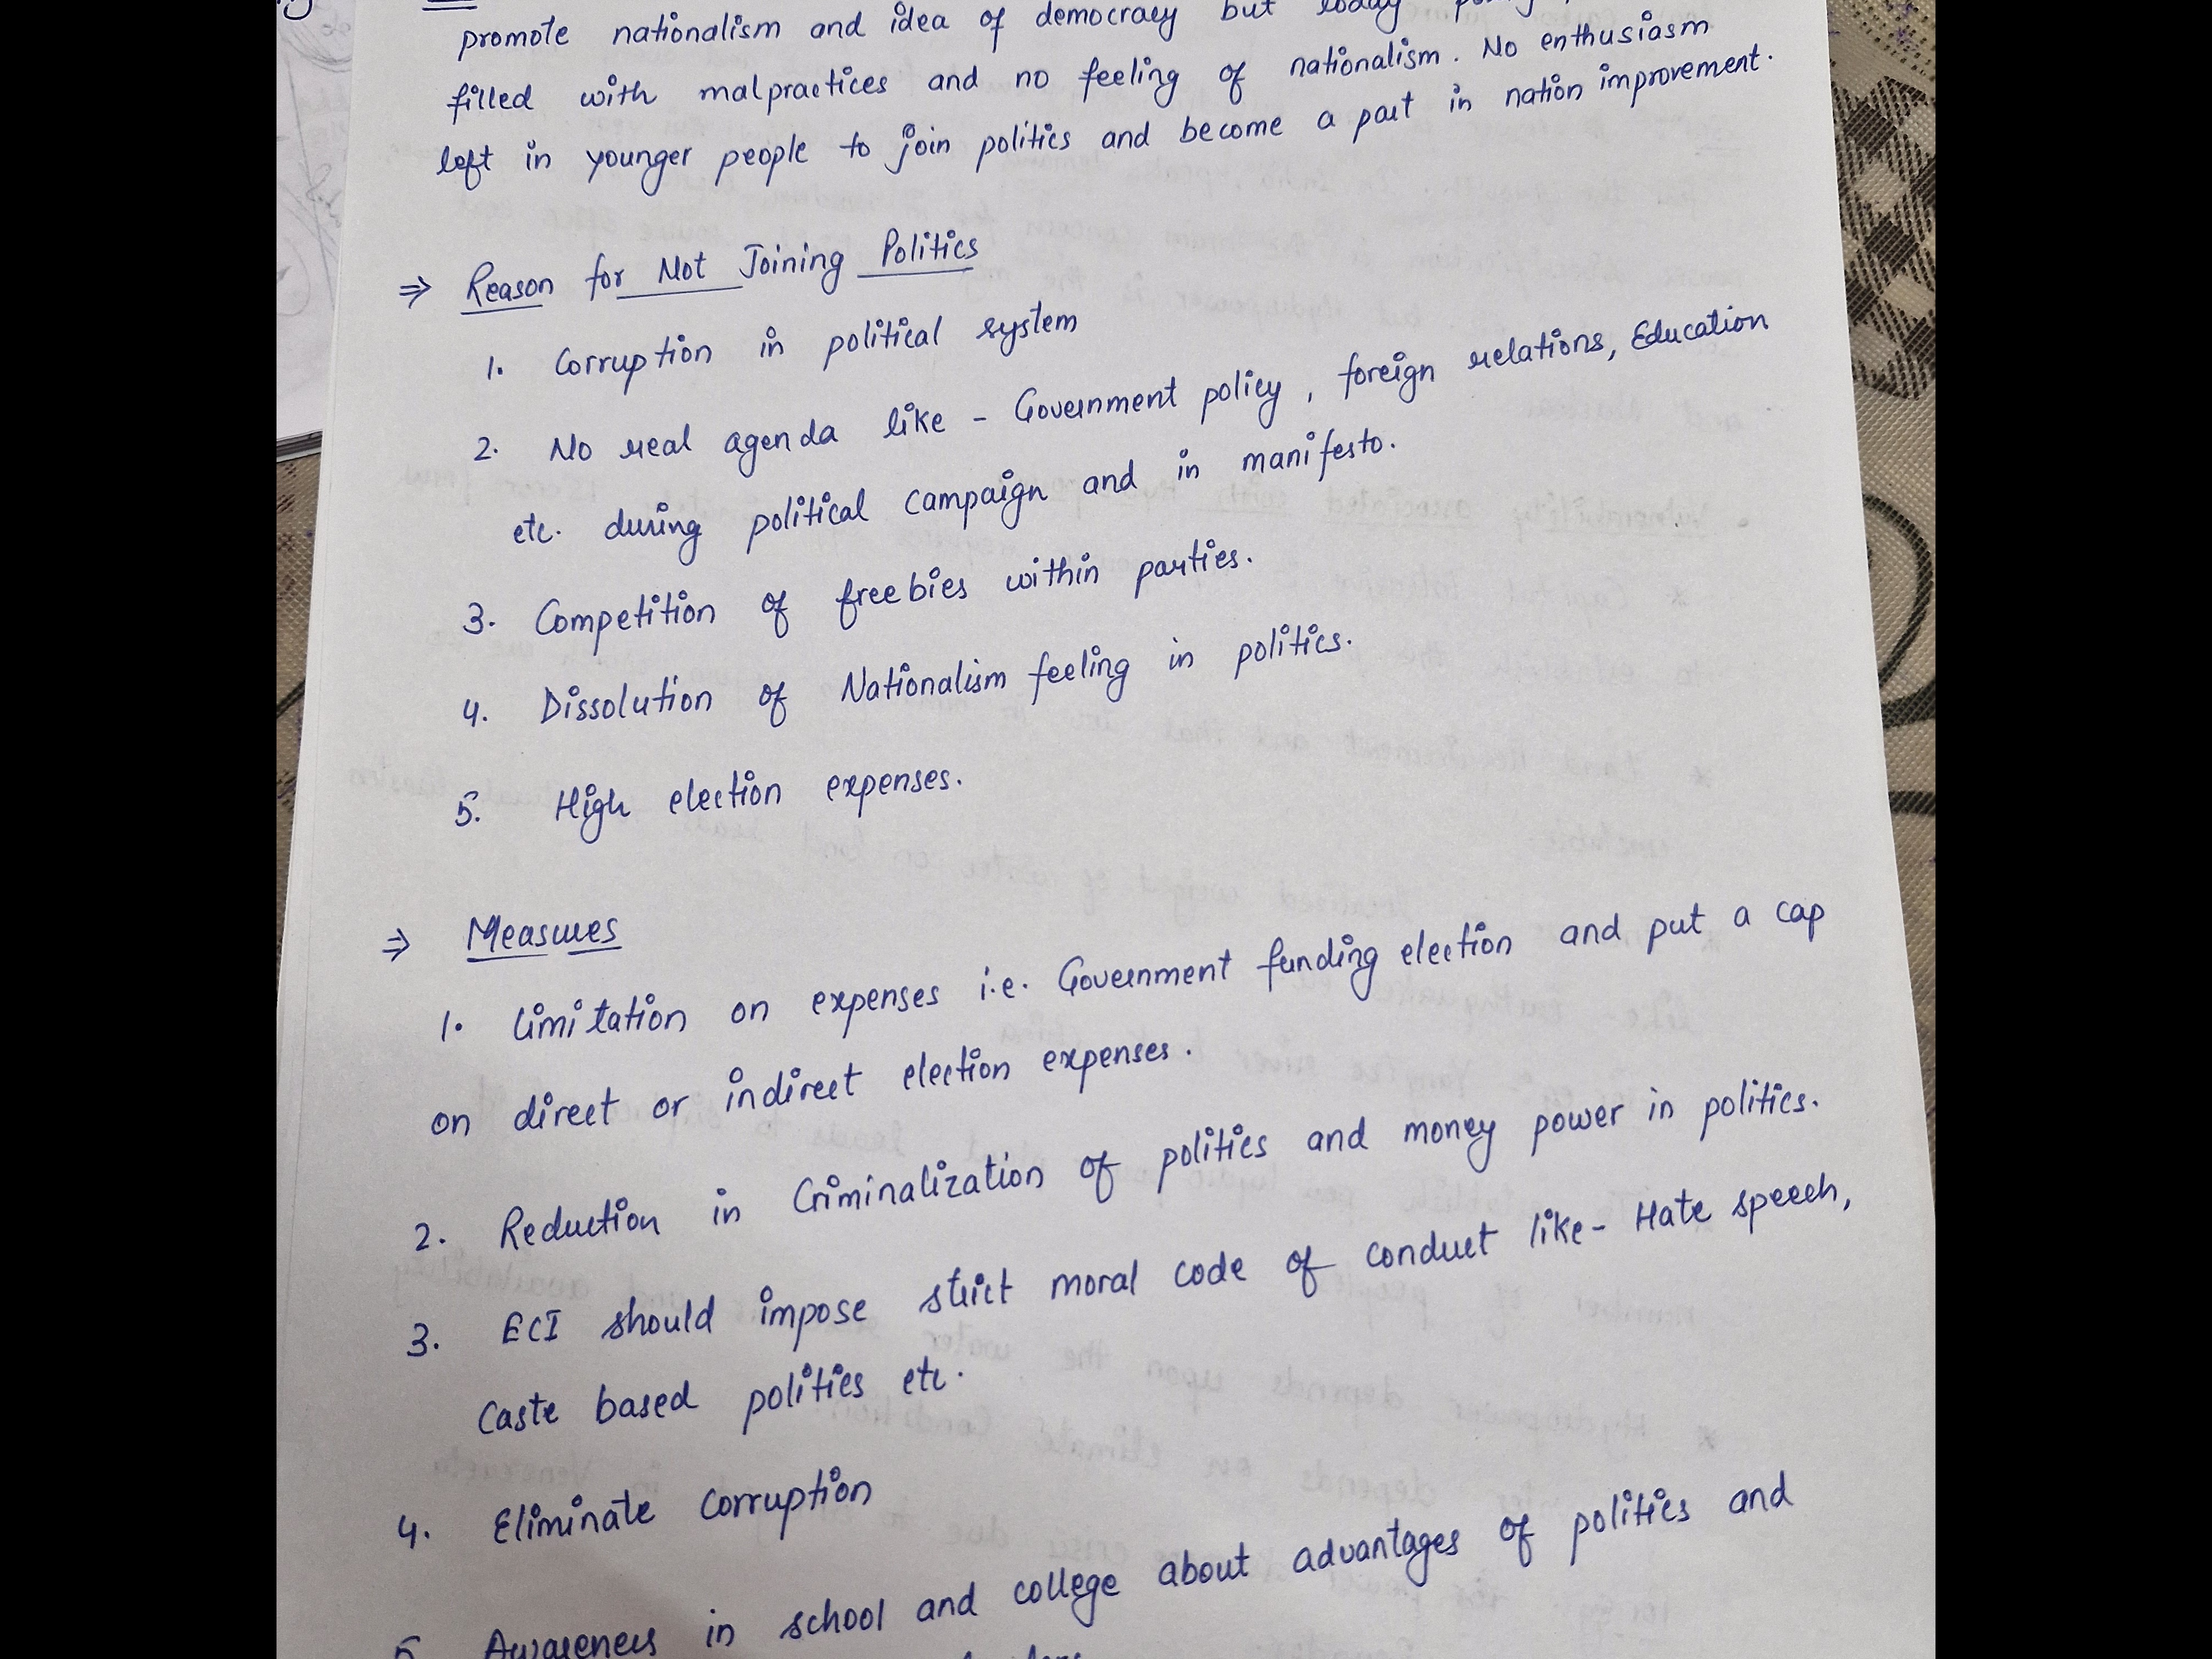 promote nationalism and idea of democracy but today
filled with malpractices and no feeling of nationalism. No enthusiasm
left in younger people to join politics and become a part in nation improvement.
⇒ Reason for Not Joining Politics
1. Corruption in political system
2. No real agenda like - Government policy, foreign relations, Education
etc. during political campaign and in manifesto.
3. Competition of freebies within parties.
4. Dissolution of Nationalism feeling in politics.
5. High election expenses.
⇒ Measures
1. Limitation on expenses i.e. Government funding election and put a cap
on direct or indirect election expenses.
2. Reduction in Criminalization of politics and money power in politics.
3. ECI should impose strict moral code of conduct like - Hate speech,
Caste based politics etc.
4. Eliminate Corruption
5 Awareness in school and college about advantages of politics and